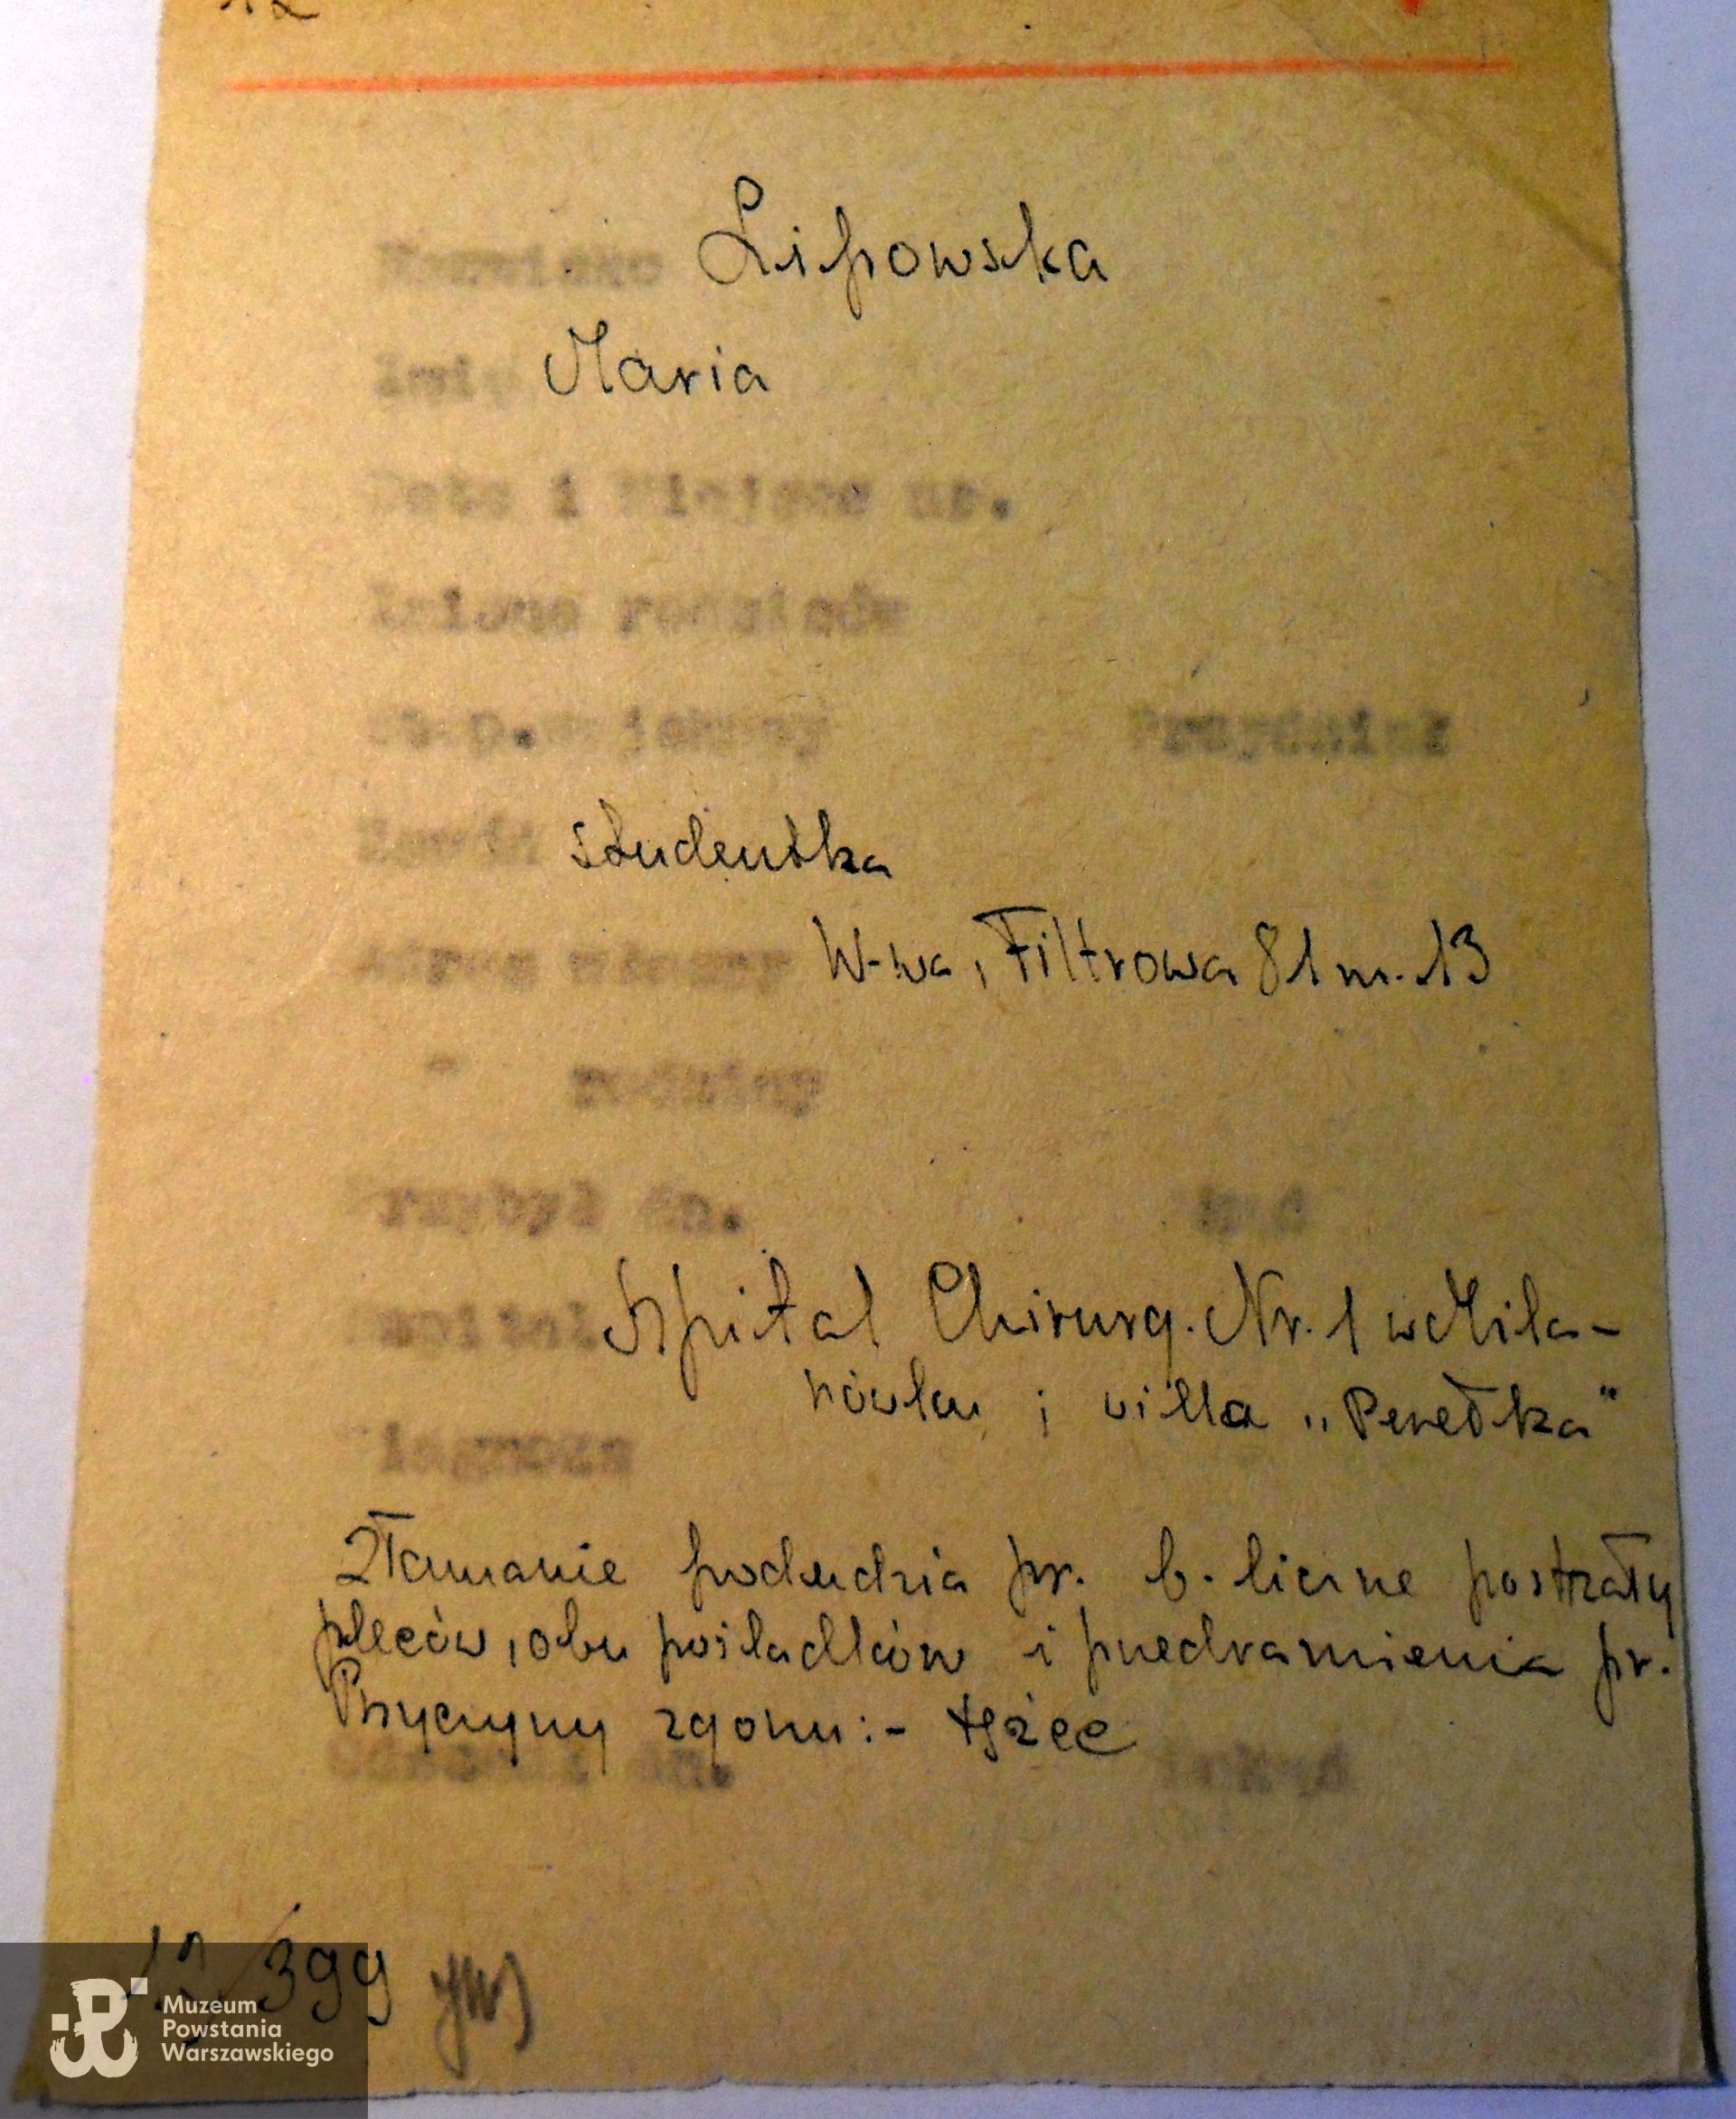 Nazwisko Lipowska
Imię Maria
Data i miejsce ur.
Imiona rodziców
St.p.wojskowy Przydział
Zawód studentka
Adres własny W-wa, Filtrowa 81 m. 13
" rodziny
Przybył dn. skąd
Szpital Szpital Chirurg. Nr. 1 w Mila-
nówku i willa „Perełka"
Diagnoza
Złamanie podudzia pr. b. liczne postrzały
pleców, obu pośladków i przedramienia pr.
Przyczyny zgonu:- tężec
Odszedł dn. dokąd
12/399
Muzeum
Powstania
Warszawskiego